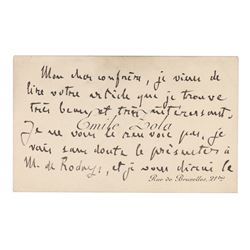 Mon cher confrère, je viens de
lire votre article que je trouve
très beau et très intéressant.
Emile Zola
Je ne vous le renvoie pas, je
vais sans doute le présenter à
M. de Rodays, et je vous dirai le
Rue de Bruxelles, 21bis